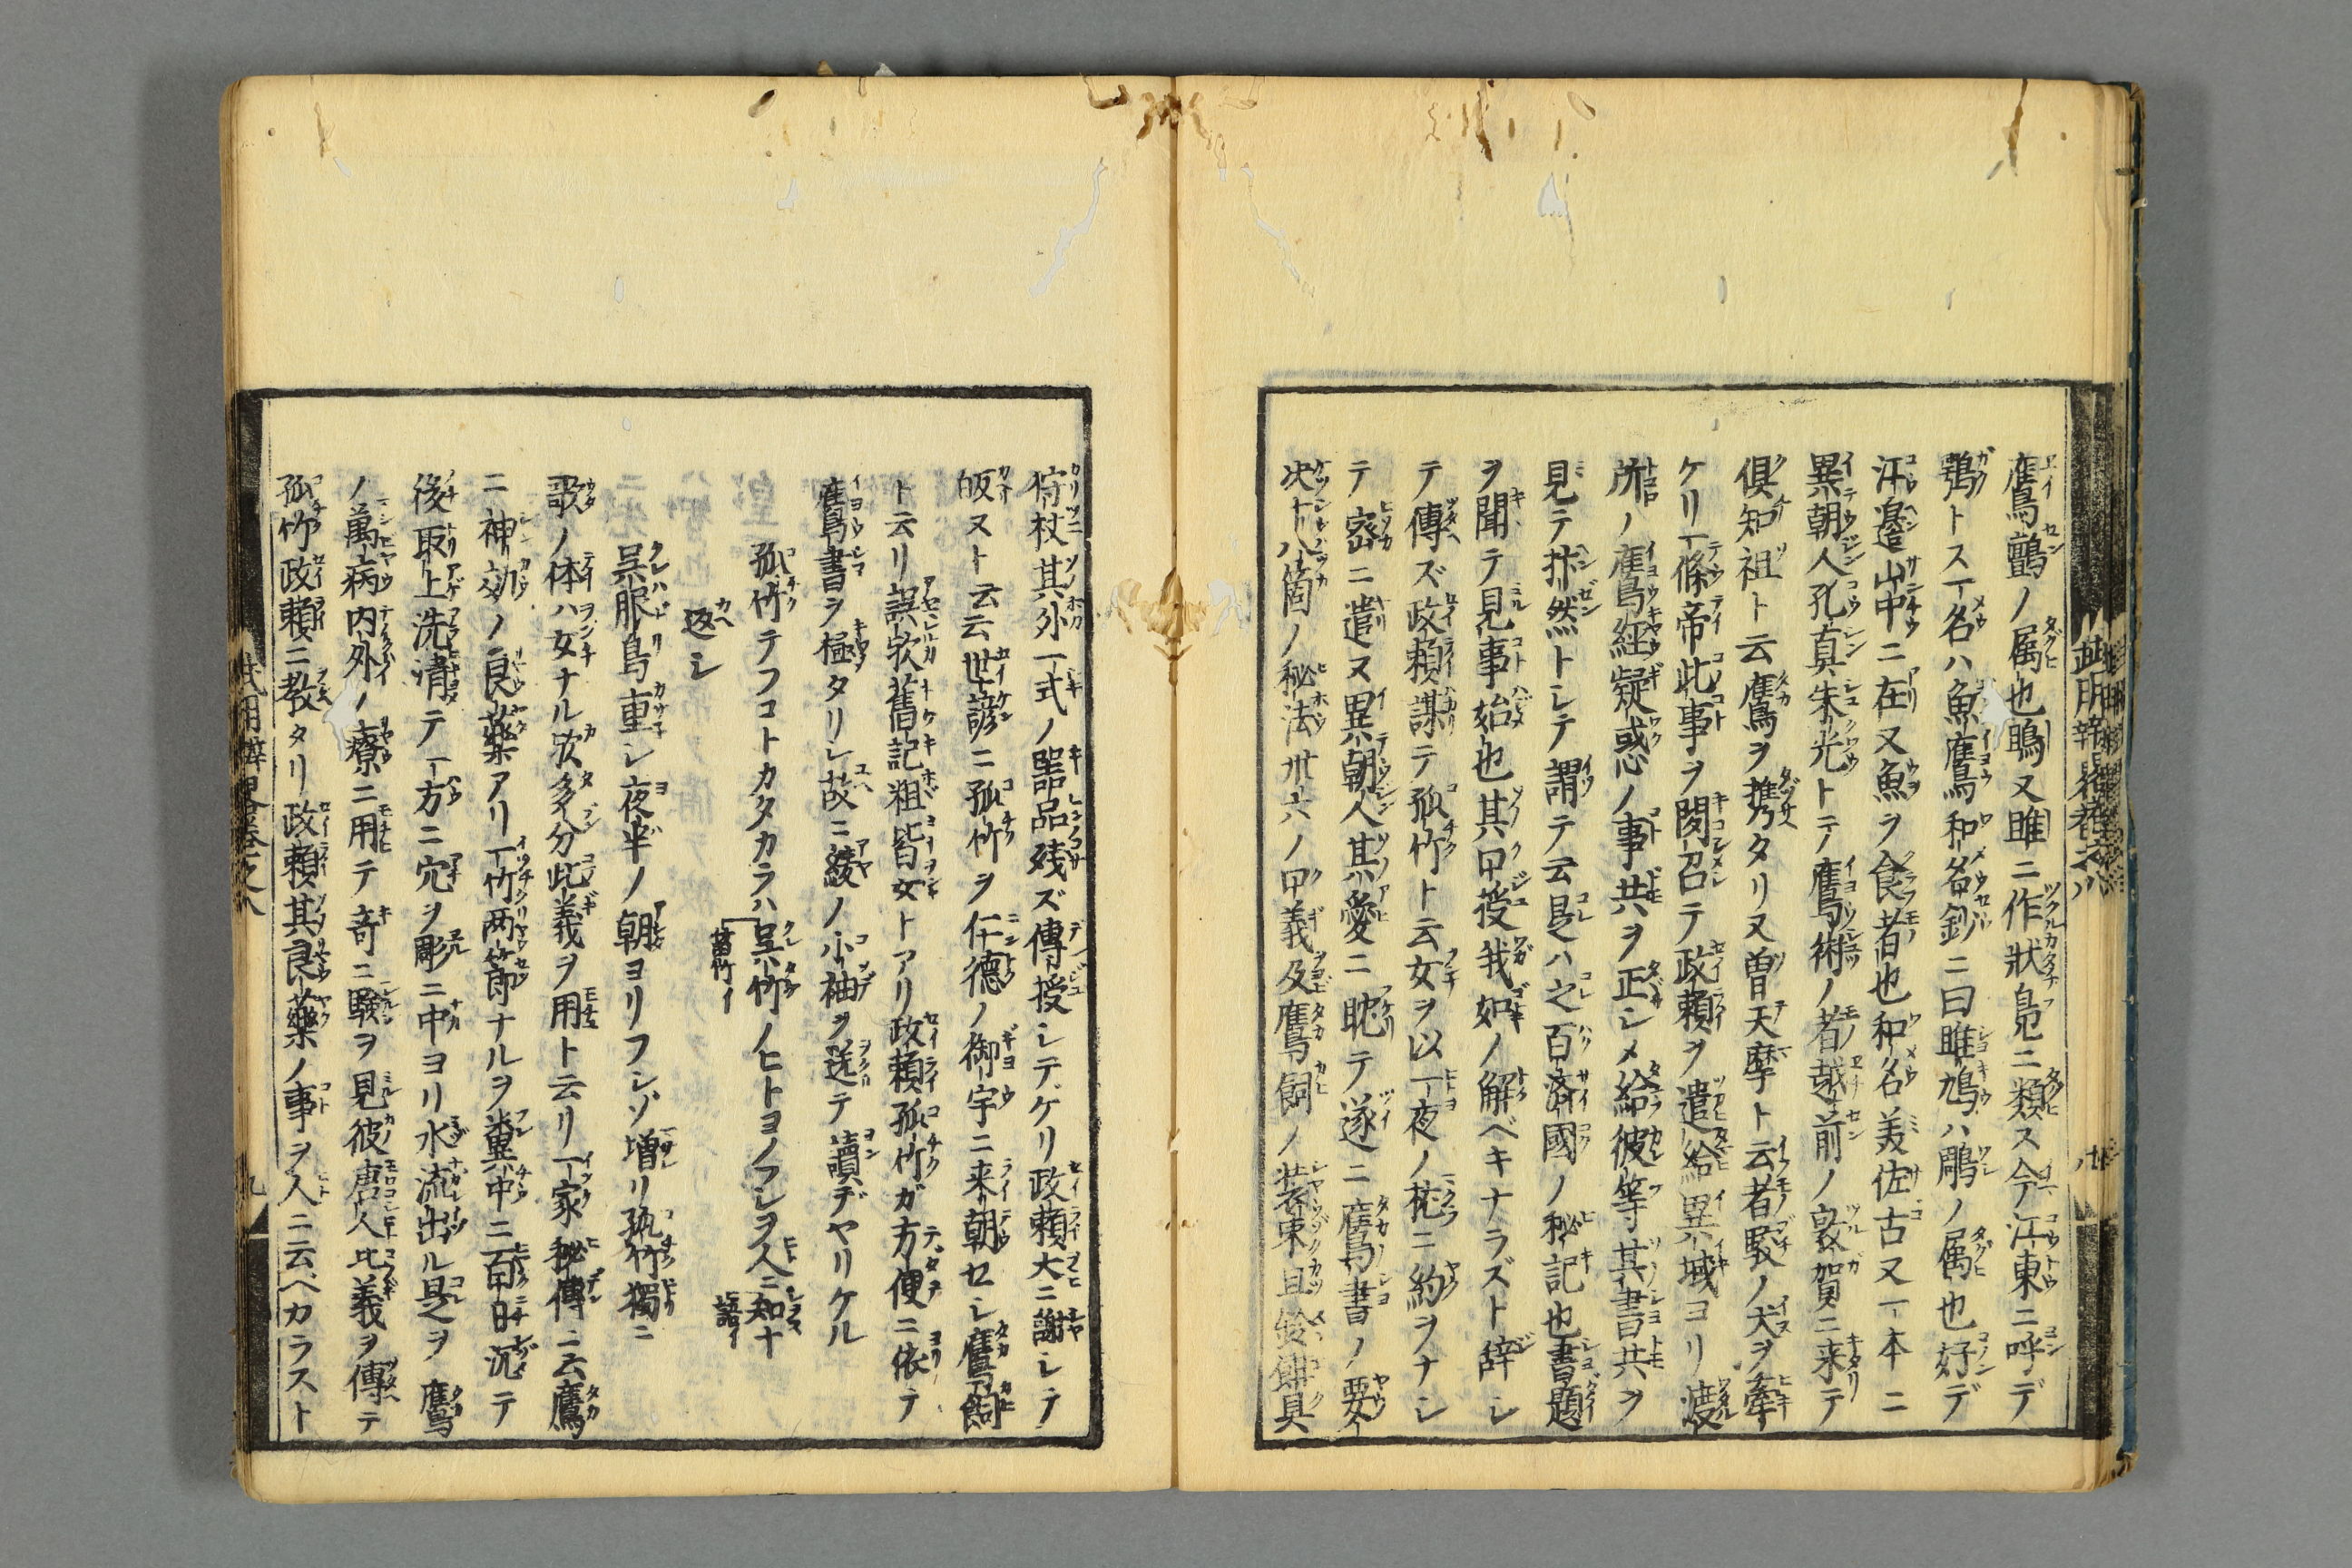 鷹鸇ノ属也鴡又雎ニ作狀鳧ニ類ス今江東ニ呼デ
鶚トス一名ハ魚鷹和名鈔ニ曰雎鳩ハ鵰ノ属也好デ
江邉山中ニ在又魚ヲ食者也和名美佐古又一本ニ
異朝人孔真朱光トテノ鷹術ノ者越前ノ敦賀ニ来テ
倶知祖ト云鷹ヲ携タリ又曽天摩ト云者駮ノ犬ヲ牽
ケリ一條帝此事ヲ聞召テ政頼ヲ遣給異域ヨリ渡
所ノ鷹經疑惑ノ事共ヲ正シメ給彼等其書共ヲ
見テ抃然トシテ謂テ云是ハ之百済國ノ秘記也書題
ヲ聞テ見事始也其口授我如ノ解ベキナラズト辞シ
テ傳ズ政頼謀テ孤竹ト云女ヲ以一夜ノ枕ニ約ヲナシ
テ密ニ遣ヌ異朝人其愛ニ耽テ遂ニ鷹書ノ要
决十八箇ノ秘法卅六ノ口義及鷹飼ノ装束且鈴餌具
狩杖其外一式ノ噐品残ズ傳授シテケリ政頼大ニ謝シテ
皈ヌト云云世諺ニ孤竹ヲ仁德ノ御宇ニ来朝セシ鷹飼
ト云リ誤欤舊記粗皆女トアリ政頼孤竹ガ方便ニ依テ
鷹書ヲ極タリシ故ニ綾ノ小袖ヲ送テ讀デヤリケル
孤竹テフコトカタカラハ呉竹ノヒトヨノフシヲ人ニ知ナ
笛竹イ 語イ
返シ
呉服鳥重シ夜半ノ朝ヨリフシゾ増リ孤竹獨ニ
歌ノ体ハ女ナル欤多分此義ヲ用ト云リ一家秘傳ニ云鷹
ニ神効ノ良藥アリ一竹両節ナルヲ糞中ニ百日沉テ
後取上洗清テ一方ニ穴ヲ彫ニ中ヨリ水流出ル是ヲ鷹
ノ萬病内外ノ療ニ用テ竒ニ驗ヲ見彼唐人此義ヲ傳テ
孤竹政頼ニ教タリ政頼其良藥ノ事ヲ人ニ云ベカラスト